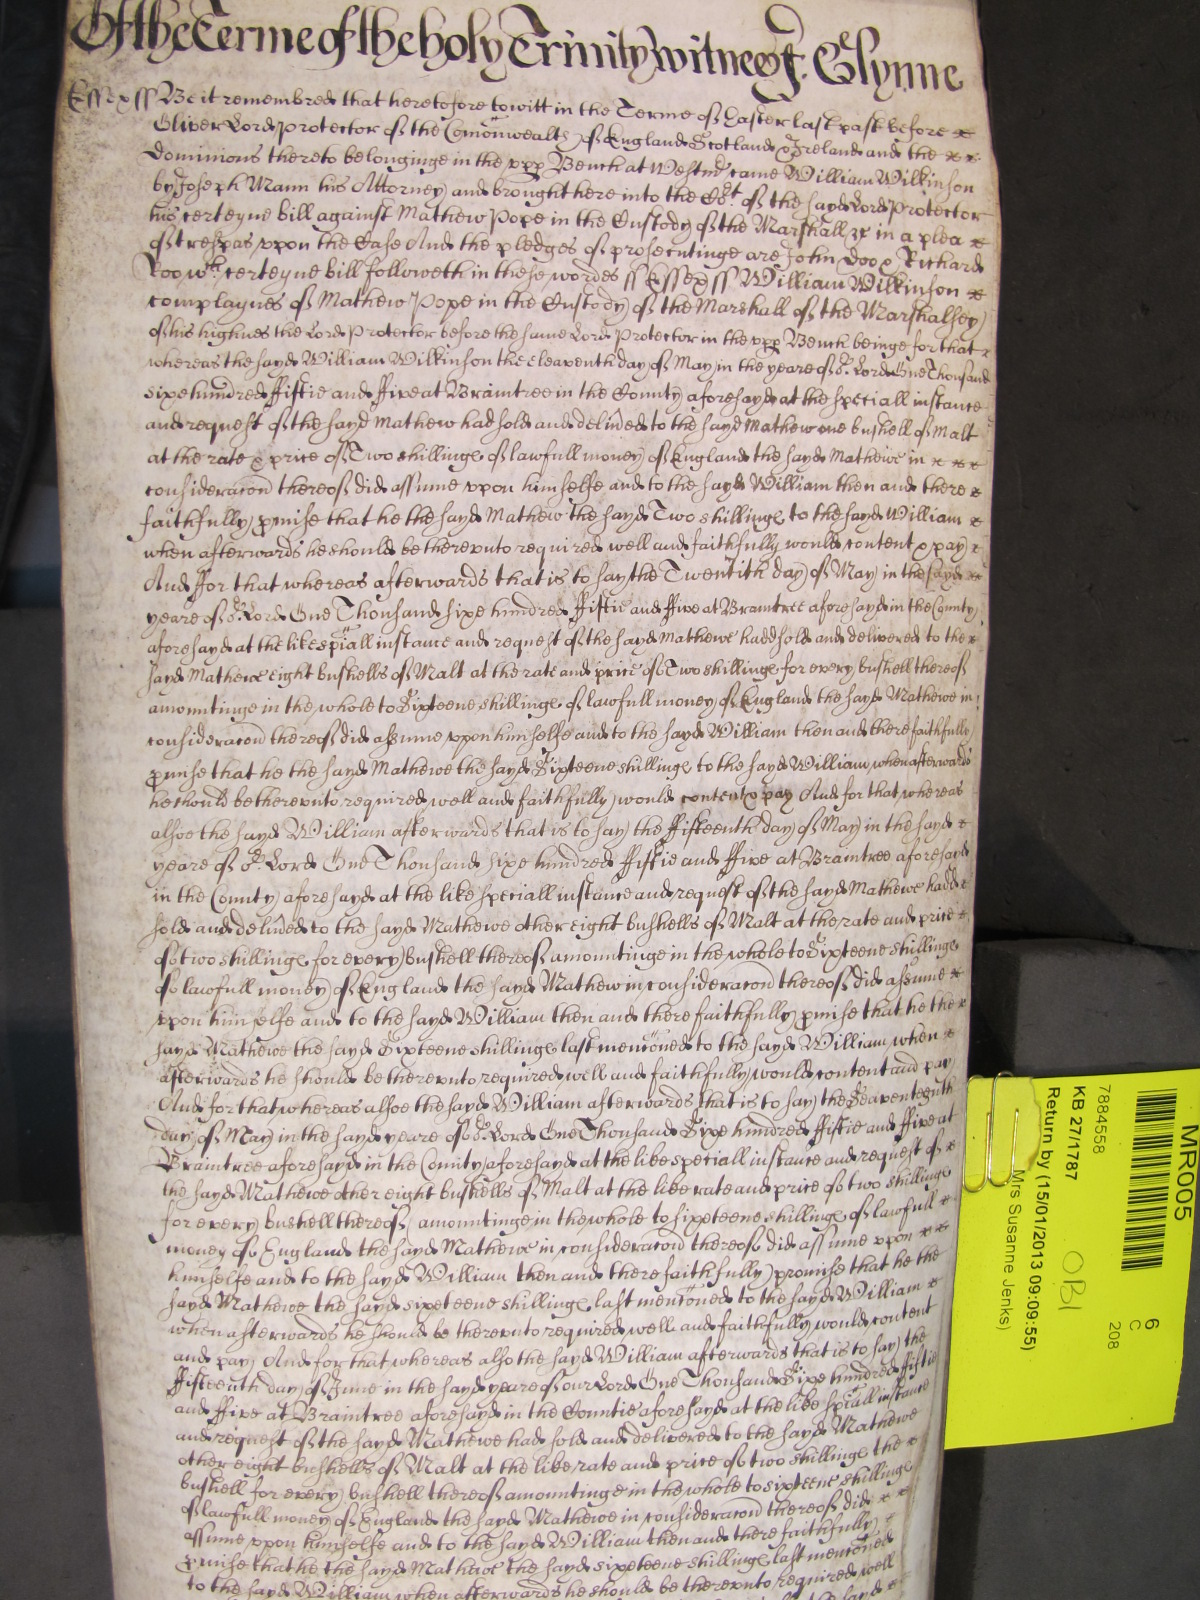 Of the Terme of the holy Trinity witnes J. Glynne
Essex ss Be it remembred that heretofore to witt in the Terme of Easter last past before
Oliver Lord Protector of the Comonwealth of England Scotland & Ireland and the
Dominions thereto belonginge in the upp Bench at Westm̄ came William Wilkinson
by Joseph Mann his Attorney and brought here into the Co:t of the sayd Lord Protector
his certeyne bill against Mathew Pope in the Custody of the Marshall &c in a plea
of trespas upon the Case And the pledges of prosecutinge are John Doo & Richard
Roo wch certeyne bill followeth in these wordes ss Essex ss William Wilkinson
complaynes of Mathew Pope in the Custody of the Marshall of the Marshalsey
of his highnes the Lord Protector before the same Lord Protector in the upp Bench beinge for that
whereas the sayd William Wilkinson the eleaventh day of May in the yeare of o:r Lord One Thousand
sixe hundred ffiftie and ffive at Braintree in the County aforesayd at the speciall instance
and request of the sayd Mathew had sold and delivĉed to the sayd Mathew one bushell of Malt
at the rate & price of Two shillinge of lawfull money of England the sayd Mathewe in
consideracon thereof did assume upon himselfe and to the sayd William then and there
faithfully pmise that he the sayd Mathew the sayd Two shillinge to the sayd William
when afterwards he should be thereunto required well and faithfully would content & pay
And ffor that whereas afterwards that is to say the Twentith day of May in the sayd
yeare of o:r Lord One Thousand sixe hundred ffiftie and ffive at Braintree aforesayd in the County
aforesayd at the like spiall instance and request of the sayd Mathewe hadd sold and delivered to the
sayd Mathewe eight bushells of Malt at the rate and price of Two shillinge for every bushell thereof
amountinge in the whole to Sixteene shillinge of lawfull money of England the sayd Mathewe in
consideracon thereof did assume upon himselfe and to the sayd William then and there faithfully
pmise that he the sayd Mathewe the sayd Sixteene shillinge to the sayd William when afterwards
he should be thereunto required well and faithfully would content & pay And for that whereas
alsoe the sayd William afterwards that is to say the ffifteenth day of May in the sayd
yeare of o:r Lord One Thousand sixe hundred ffiftie and ffive at Braintree aforesayd
in the County aforesayd at the like speciall instance and request of the sayd Mathewe hadd
sold and delivĉed to the sayd Mathewe other eight bushells of Malt at the rate and price
of two shillinge for every bushell thereof amountinge in the whole to Sixteene shillinge
of lawfull money of England the sayd Mathew in consideracon thereof did assume
upon him selfe and to the sayd William then and there faithfully pmise that he the
sayd Mathewe the sayd Sixteene shillinge last mencōned to the sayd William when
afterwards he should be thereunto required well and faithfully would content and pay
And for that whereas alsoe the sayd William afterwards that is to say the Seaventeenth
day of May in the sayd yeare of o:r Lord One Thousand Sixe hundred ffiftie and ffive at
Braintree aforesayd in the County aforesayd at the like speciall instance and request of
the sayd Mathewe other eight bushells of Malt at the like rate and price of two shillinge
for every bushell thereof amountinge in the whole to sixeteene shillinge of lawfull
money of England the sayd Mathewe in consideracon thereof did assume upon
himselfe and to the sayd William then and there faithfully promise that he the
sayd Mathewe the sayd sixeteene shillinge last mencōned to the sayd William
when afterwards he should be thereunto required well and faithfully would content
and pay And for that whereas also the sayd William afterwards that is to say the
ffifteenth day of June in the sayd yeare of our Lord One Thousand Sixe hundred ffiftie
and ffive at Braintree aforesayd in the Countie aforesayd at the like spiall instance
and request of the sayd Mathewe had sold and delivered to the sayd Mathewe
other eight bushells of Malt at the like rate and price of two shillinge the
bushell for every bushell thereof amountinge in the whole to sixteene shillinge
of lawfull money of England the sayd Mathewe in consideracon thereof did
assume upon himselfe and to the sayd William then and there faithfully
pmise that he the sayd Mathewe the sayd sixeteene shillinge last mencōned
to the sayd William when afterwards he should be thereunto required well
MR005
6
C
208
7884558
KB 27/1787
OBI
Return by (15/01/2013 09:09:55)
Mrs Susanne Jenks)